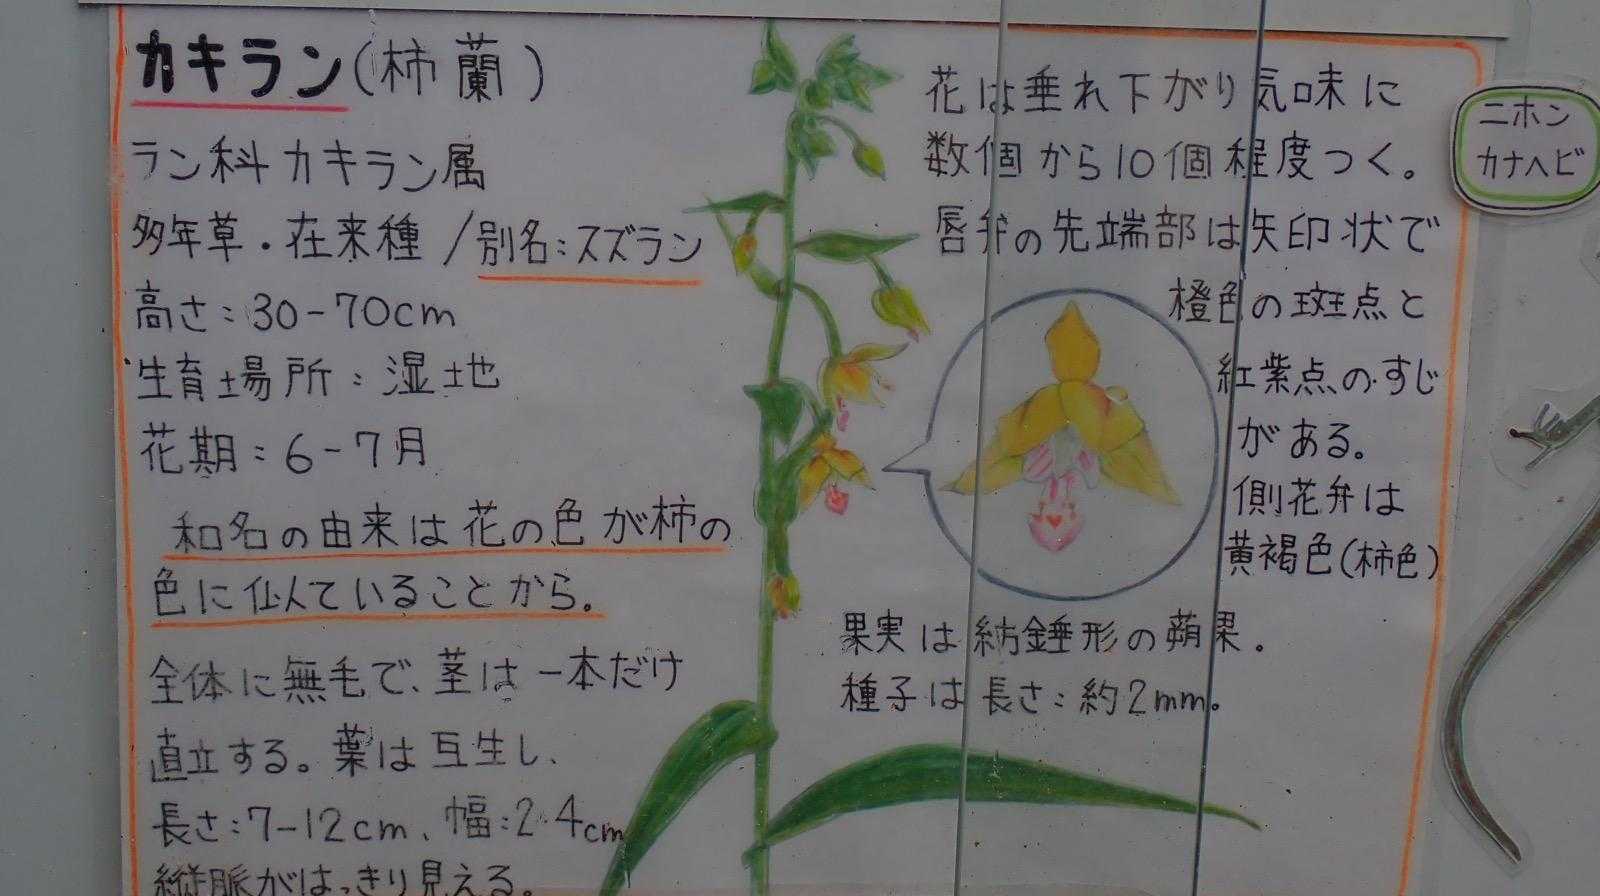 カキラン(柿蘭)
ラン科カキラン属
多年草・在来種/別名:スズラン
高さ:30-70cm
生育場所:湿地
花期:6-7月
和名の由来は花の色が柿の
色に似ていることから。
全体に無毛で、茎は一本だけ
直立する。葉は互生し、
長さ:7-12cm、幅:2-4cm
縦脈がはっきり見える。
花は垂れ下がり気味に
数個から10個程度つく。
唇弁の先端部は矢印状で
橙色の斑点と
紅紫点のすじ
がある。
側花弁は
黄褐色(柿色)
果実は紡錘形の蒴果.
種子は長さ:約2mm。
ニホン
カナヘビ